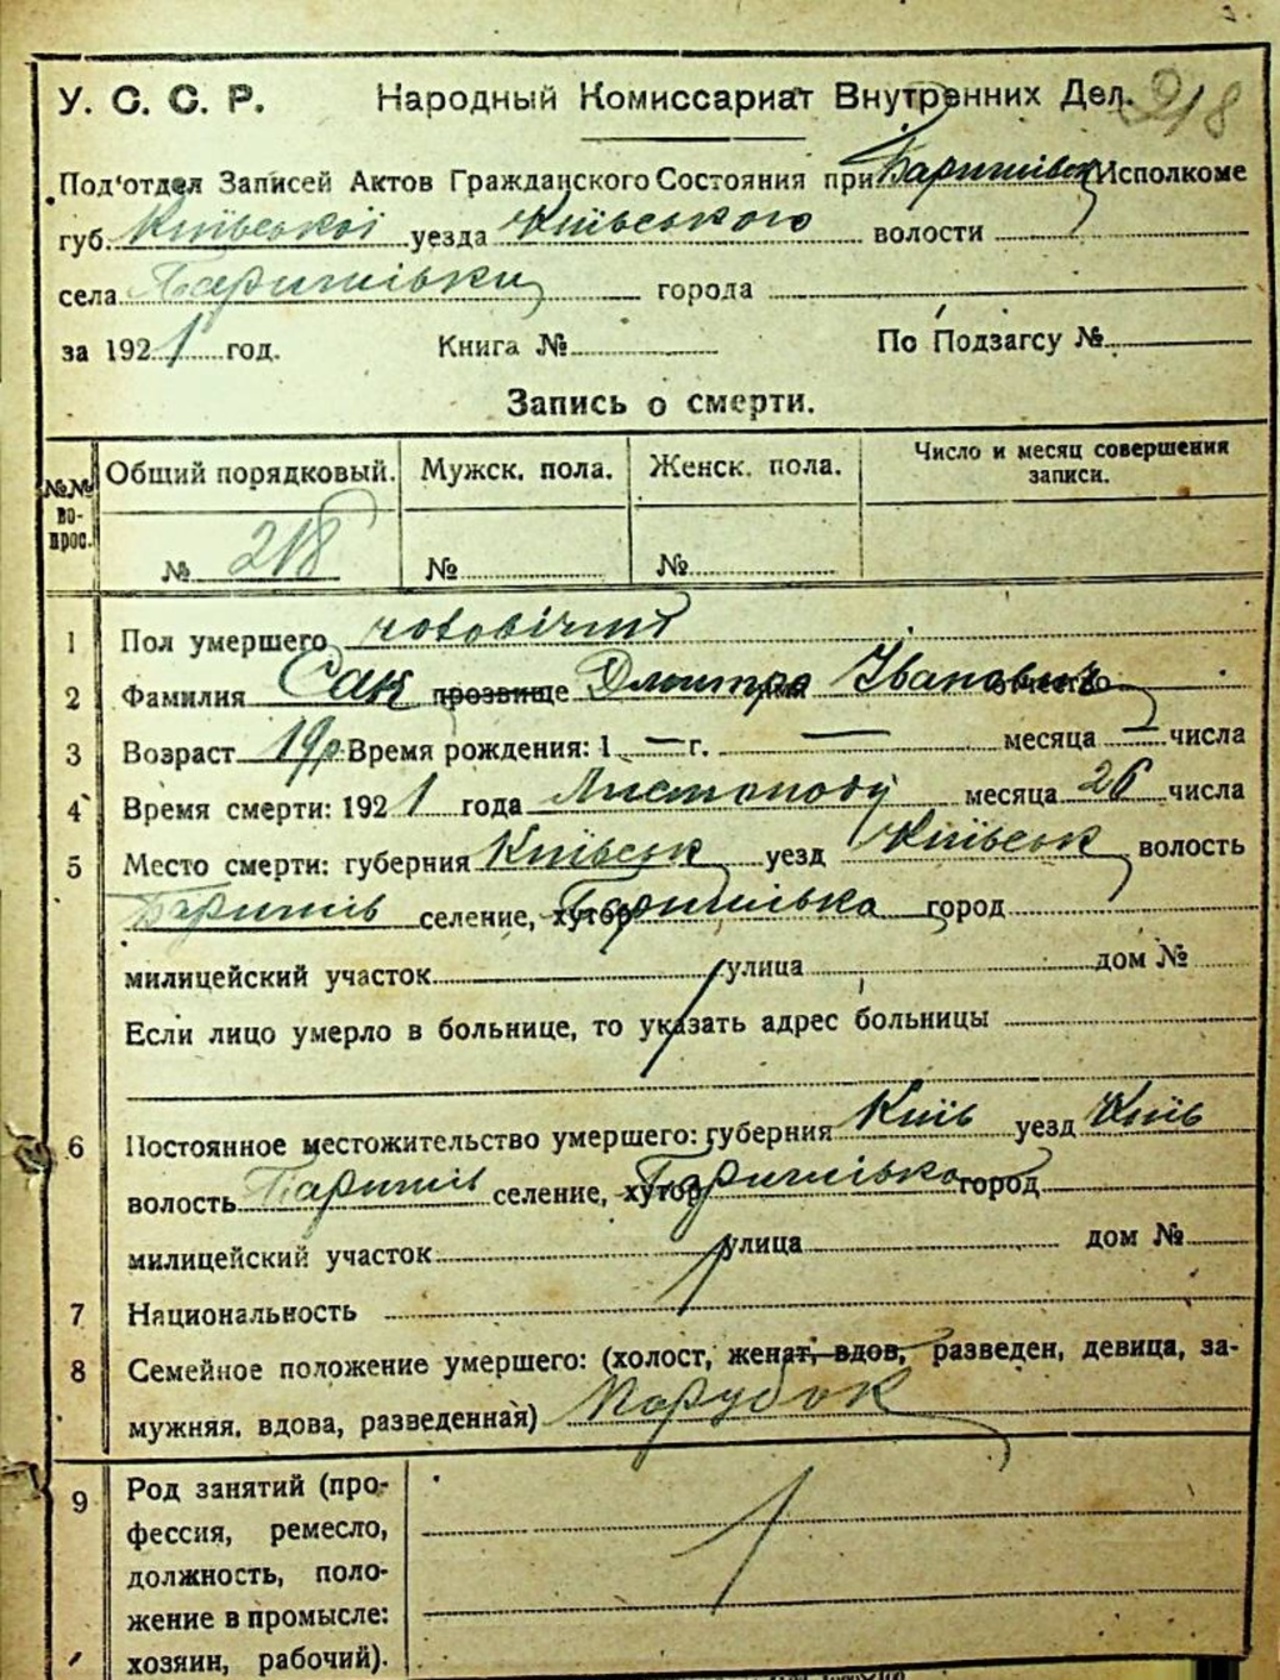 218
У. С. С. Р. Народный Комиссариат Внутренних Дел.
Под'отдел Записей Актов Гражданского Состояния при Баришівськ Исполкоме
губ. Київської уезда Київського волости
села Баришівки города
за 1921 год. Книга № По Подзагсу №
Запись о смерти.
№№ во-прос. Общий порядковый. Мужск. пола. Женск. пола. Число и месяц совершения
записи.
№ 218 № №
1 Пол умершего чоловічий
2 Фамилия Сак прозвище Дмитро Іванович отчество
3 Возраст 19р. Время рождения: 1 — г. — месяца — числа
4 Время смерти: 1921 года Листопаду месяца 26 числа
5 Место смерти: губерния Київськ уезд Київськ волость
Баришів селение, хутор Баришівка город
милицейский участок улица дом №
Если лицо умерло в больнице, то указать адрес больницы
6 Постоянное местожительство умершего: губерния Київ уезд Київ
волость Баришів селение, хутор Баришівка город
милицейский участок улица дом №
7 Национальность
8 Семейное положение умершего: (холост, женат, вдов, разведен, девица, за-
мужняя, вдова, разведенная) Парубок
9 Род занятий (про-
фессия, ремесло,
должность, поло-
жение в промысле:
хозяин, рабочий).